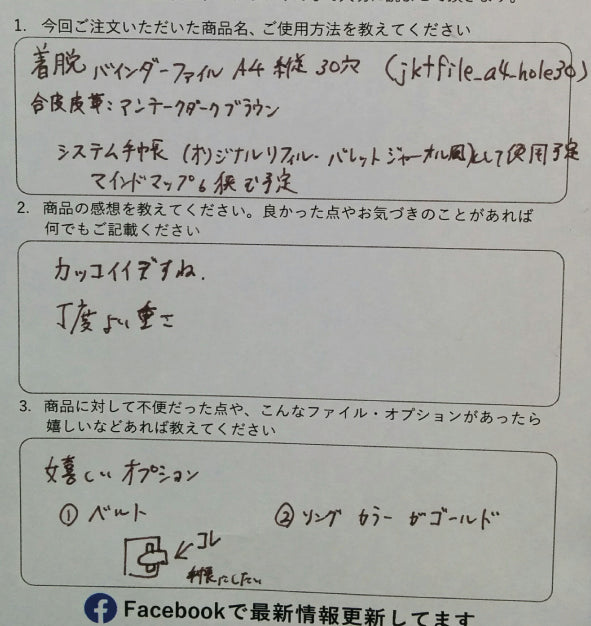 1. 今回ご注文いただいた商品名、ご使用方法を教えてください
着脱 バインダーファイル A4 縦 30穴 (jktfile_a4_hole30)
合皮皮革:アンテークダークブラウン
システム手帳 (オリジナルリフィル・バレットジャーナル風)として使用予定
マインドマップも 使う予定
2. 商品の感想を教えてください。良かった点やお気づきのことがあれば
何でもご記載ください
カッコイイですね.
丁度よい重さ
3. 商品に対して不便だった点や、こんなファイル・オプションがあったら
嬉しいなどあれば教えてください
嬉しい オプション
① ベルト ② リング カラー がゴールド
コレ
にしたい
Facebookで最新情報更新してます